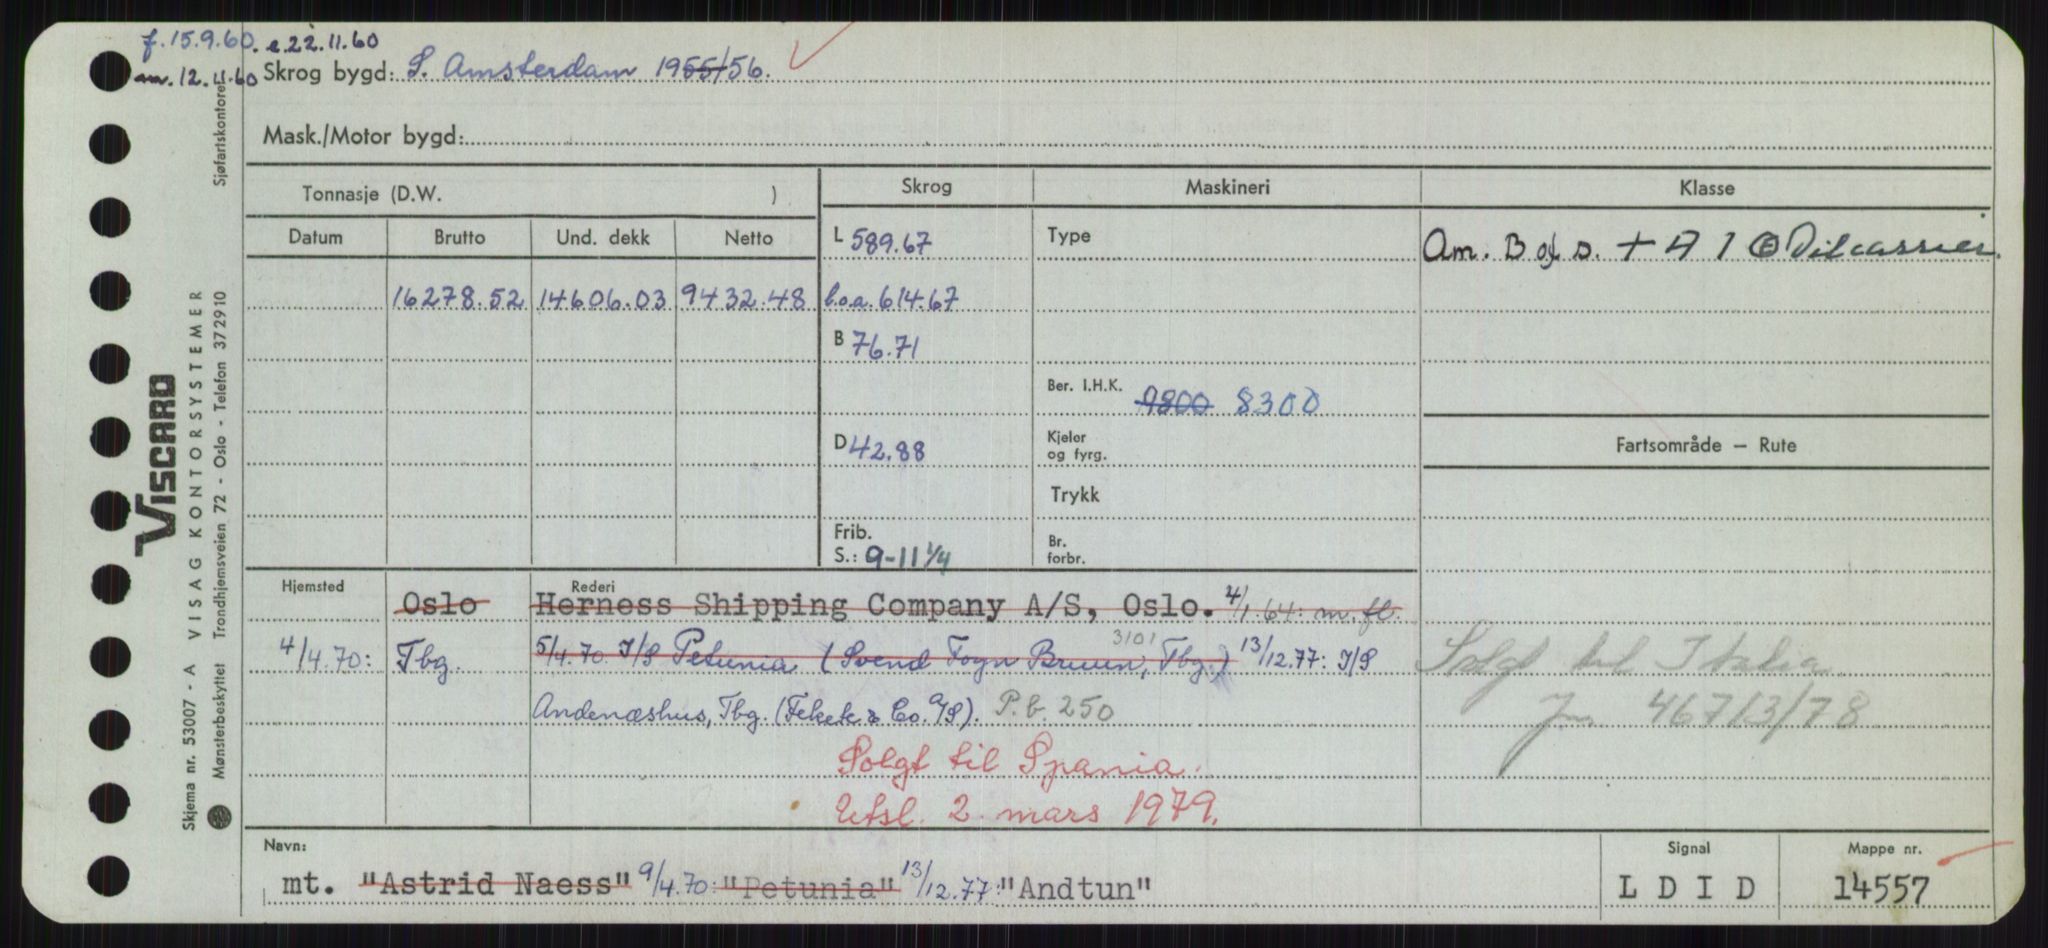 f. 15.9.60. e.22.11.60
am. 12.11.60 Skrog bygd: S. Amsterdam 1955/56.
Mask./Motor bygd:
Tonnasje (D.W. )
Skrog Maskineri Klasse
Datum Brutto Und. dekk Netto
L 589.67 Type Am. B of S. + A 1 Ⓔ Oilcarrier.
16278.52 14606.03 9432.48 l.o.a. 614.67
B 76.71
Ber. I.H.K. 9800 8300
D 42.88 Kjeler og fyrg.
Fartsområde — Rute
Trykk
Frib. S.: 9-11 1/4 Br. forbr.
Hjemsted Rederi
Oslo Herness Shipping Company A/S, Oslo. 4/1.64: m.fl.
3101
4/4.70: Tbg. 5/4.70 I/S Petunia (Svend Foyn Bruun, Tbg.) 13/12.77: I/S
Solgt til Italia
Andenæshus, Tbg. (Fekete & Co. A/S). P.b. 250
Jn 467/3/78
Solgt til Spania.
Utsl. 2. mars 1979.
Navn: Signal Mappe nr.
mt. "Astrid Naess" 9/4.70: "Petunia" 13/12.77: "Andtun" L D I D 14557
VISCARD
Skjema nr. 53007 - A VISAG KONTORSYSTEMER
Mønsterbeskyttet Trondhjemsveien 72 - Oslo - Telefon 372910 Sjøfartskontoret